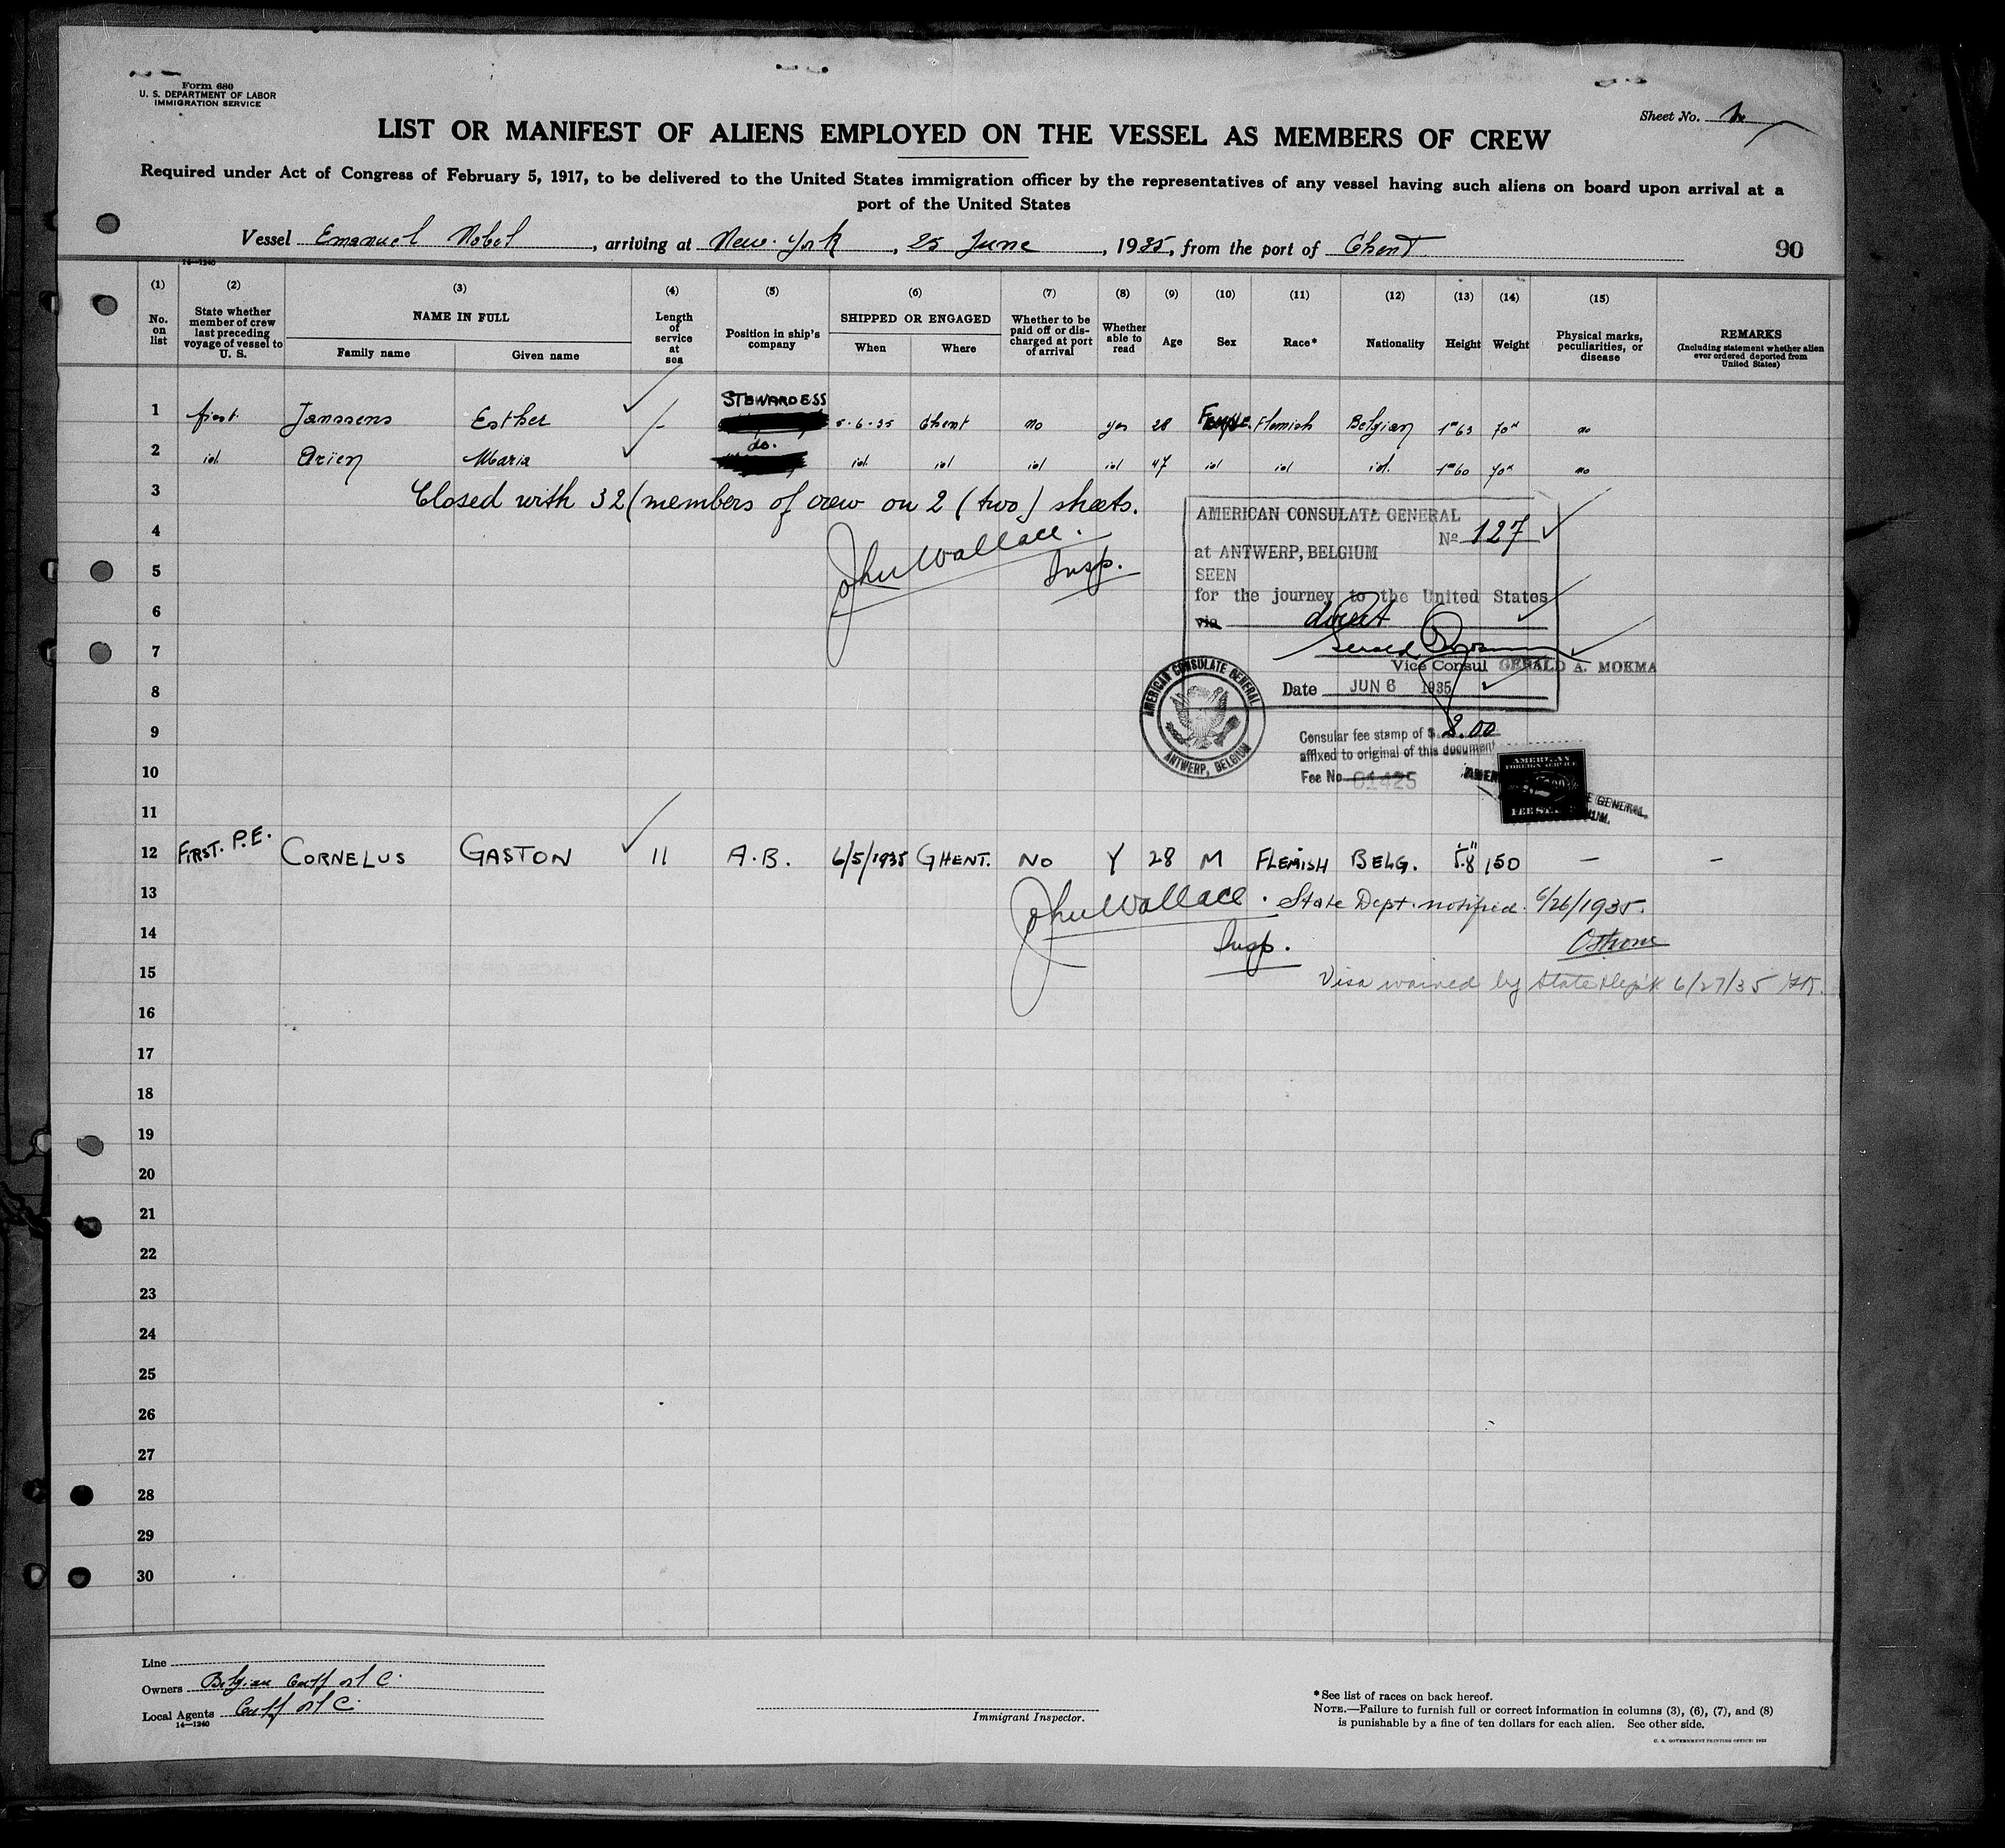 Form 680
U. S. DEPARTMENT OF LABOR
IMMIGRATION SERVICE
Sheet No.
LIST OR MANIFEST OF ALIENS EMPLOYED ON THE VESSEL AS MEMBERS OF CREW
Required under Act of Congress of February 5, 1917, to be delivered to the United States immigration officer by the representatives of any vessel having such aliens on board upon arrival at a
port of the United States
Vessel Emanuel Nobel, arriving at New-York, 25 June, 1935, from the port of Ghent 90
14—1240
(1) (2) (3) (4) (5) (6) (7) (8) (9) (10) (11) (12) (13) (14) (15)
No. on list
State whether member of crew last preceding voyage of vessel to U. S.
NAME IN FULL
Family name Given name
Length of service at sea
Position in ship's company
SHIPPED OR ENGAGED
When Where
Whether to be paid off or discharged at port of arrival
Whether able to read
Age
Sex
Race*
Nationality
Height
Weight
Physical marks, peculiarities, or disease
REMARKS
(Including statement whether alien ever ordered deported from United States)
1 first Janssens Esther / STEWARDESS 5-6-35 Ghent no yes 28 Flemish Belgian 1m63 70K no
2 id. Ariën Maria do. id. id id id 47 id id id. 1m60 70K no
3 Closed with 32 (members of crew on 2 (two) sheets.
4 John Wallace.
5 Insp.
6
7
8
9
10
11
AMERICAN CONSULATE GENERAL
No 127
at ANTWERP, BELGIUM
SEEN
for the journey to the United States
via direct
Vice Consul GERALD A. MOKMA
Date JUN 6 1935
AMERICAN CONSULATE GENERAL
ANTWERP, BELGIUM
Consular fee stamp of $ 2.00
affixed to original of this document
Fee No. 01425
AMERICAN
FOREIGN SERVICE
FEE STAMP
E GENERAL
12 FIRST. P.E. CORNELUS GASTON 11 A.B. 6/5/1935 GHENT. NO Y 28 M FLEMISH BELG. 5.8" 150 – –
13 John Wallace. State Dept. notified. 6/26/1935.
14 Insp.
15 Visa waived by State Dep't 6/27/35
16
17
18
19
20
21
22
23
24
25
26
27
28
29
30
Line
Owners Belgian Gulf Oil C.
Local Agents Gulf Oil C.
14—1240
Immigrant Inspector.
* See list of races on back hereof.
NOTE.—Failure to furnish full or correct information in columns (3), (6), (7), and (8)
is punishable by a fine of ten dollars for each alien. See other side.
U. S. GOVERNMENT PRINTING OFFICE: 1932